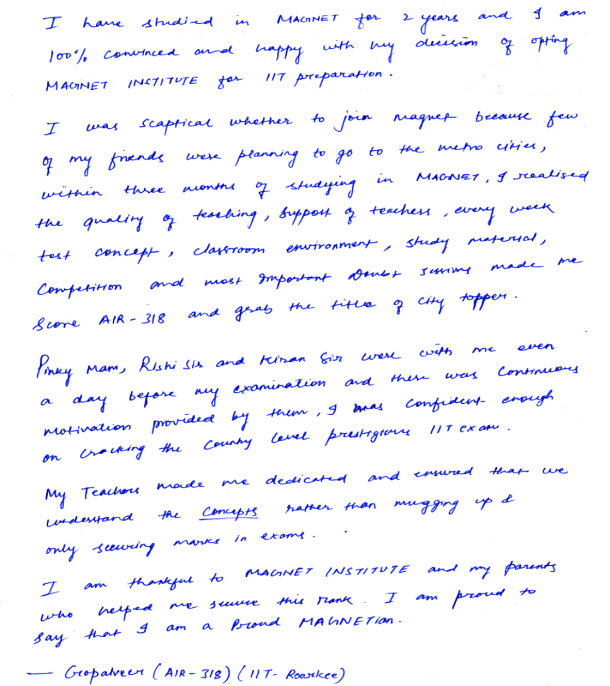 I have studied in MAGNET for 2 years and I am
100% convinced and happy with my decision of opting
MAGNET INSTITUTE for IIT preparation.
I was scaptical whether to join magnet because few
of my friends were planning to go to the metro cities,
within three months of studying in MAGNET, I realised
the quality of teaching, support of teachers, every week
test concept, classroom environment, study material,
Competition and most Important Doubt sessions made me
Score AIR-318 and grab the title of city topper.
Pinky Mam, Rishi Sir and Kiran Sir were with me even
a day before my examination and there was continuous
motivation provided by them, I was confident enough
on cracking the County level prestigious IIT exam.
My Teachers made me dedicated and ensured that we
understand the Concepts rather than mugging up &
only securing marks in exams.
I am thankful to MAGNET INSTITUTE and my parents
who helped me secure this rank. I am proud to
say that I am a Proud MAGNETian.
— Gopalveer (AIR-318) (IIT-Roarkee)